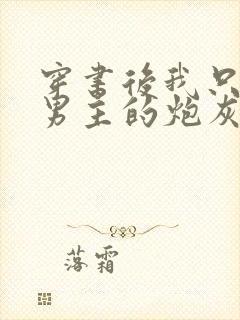 穿書後我只
男主的炮灰
落霜